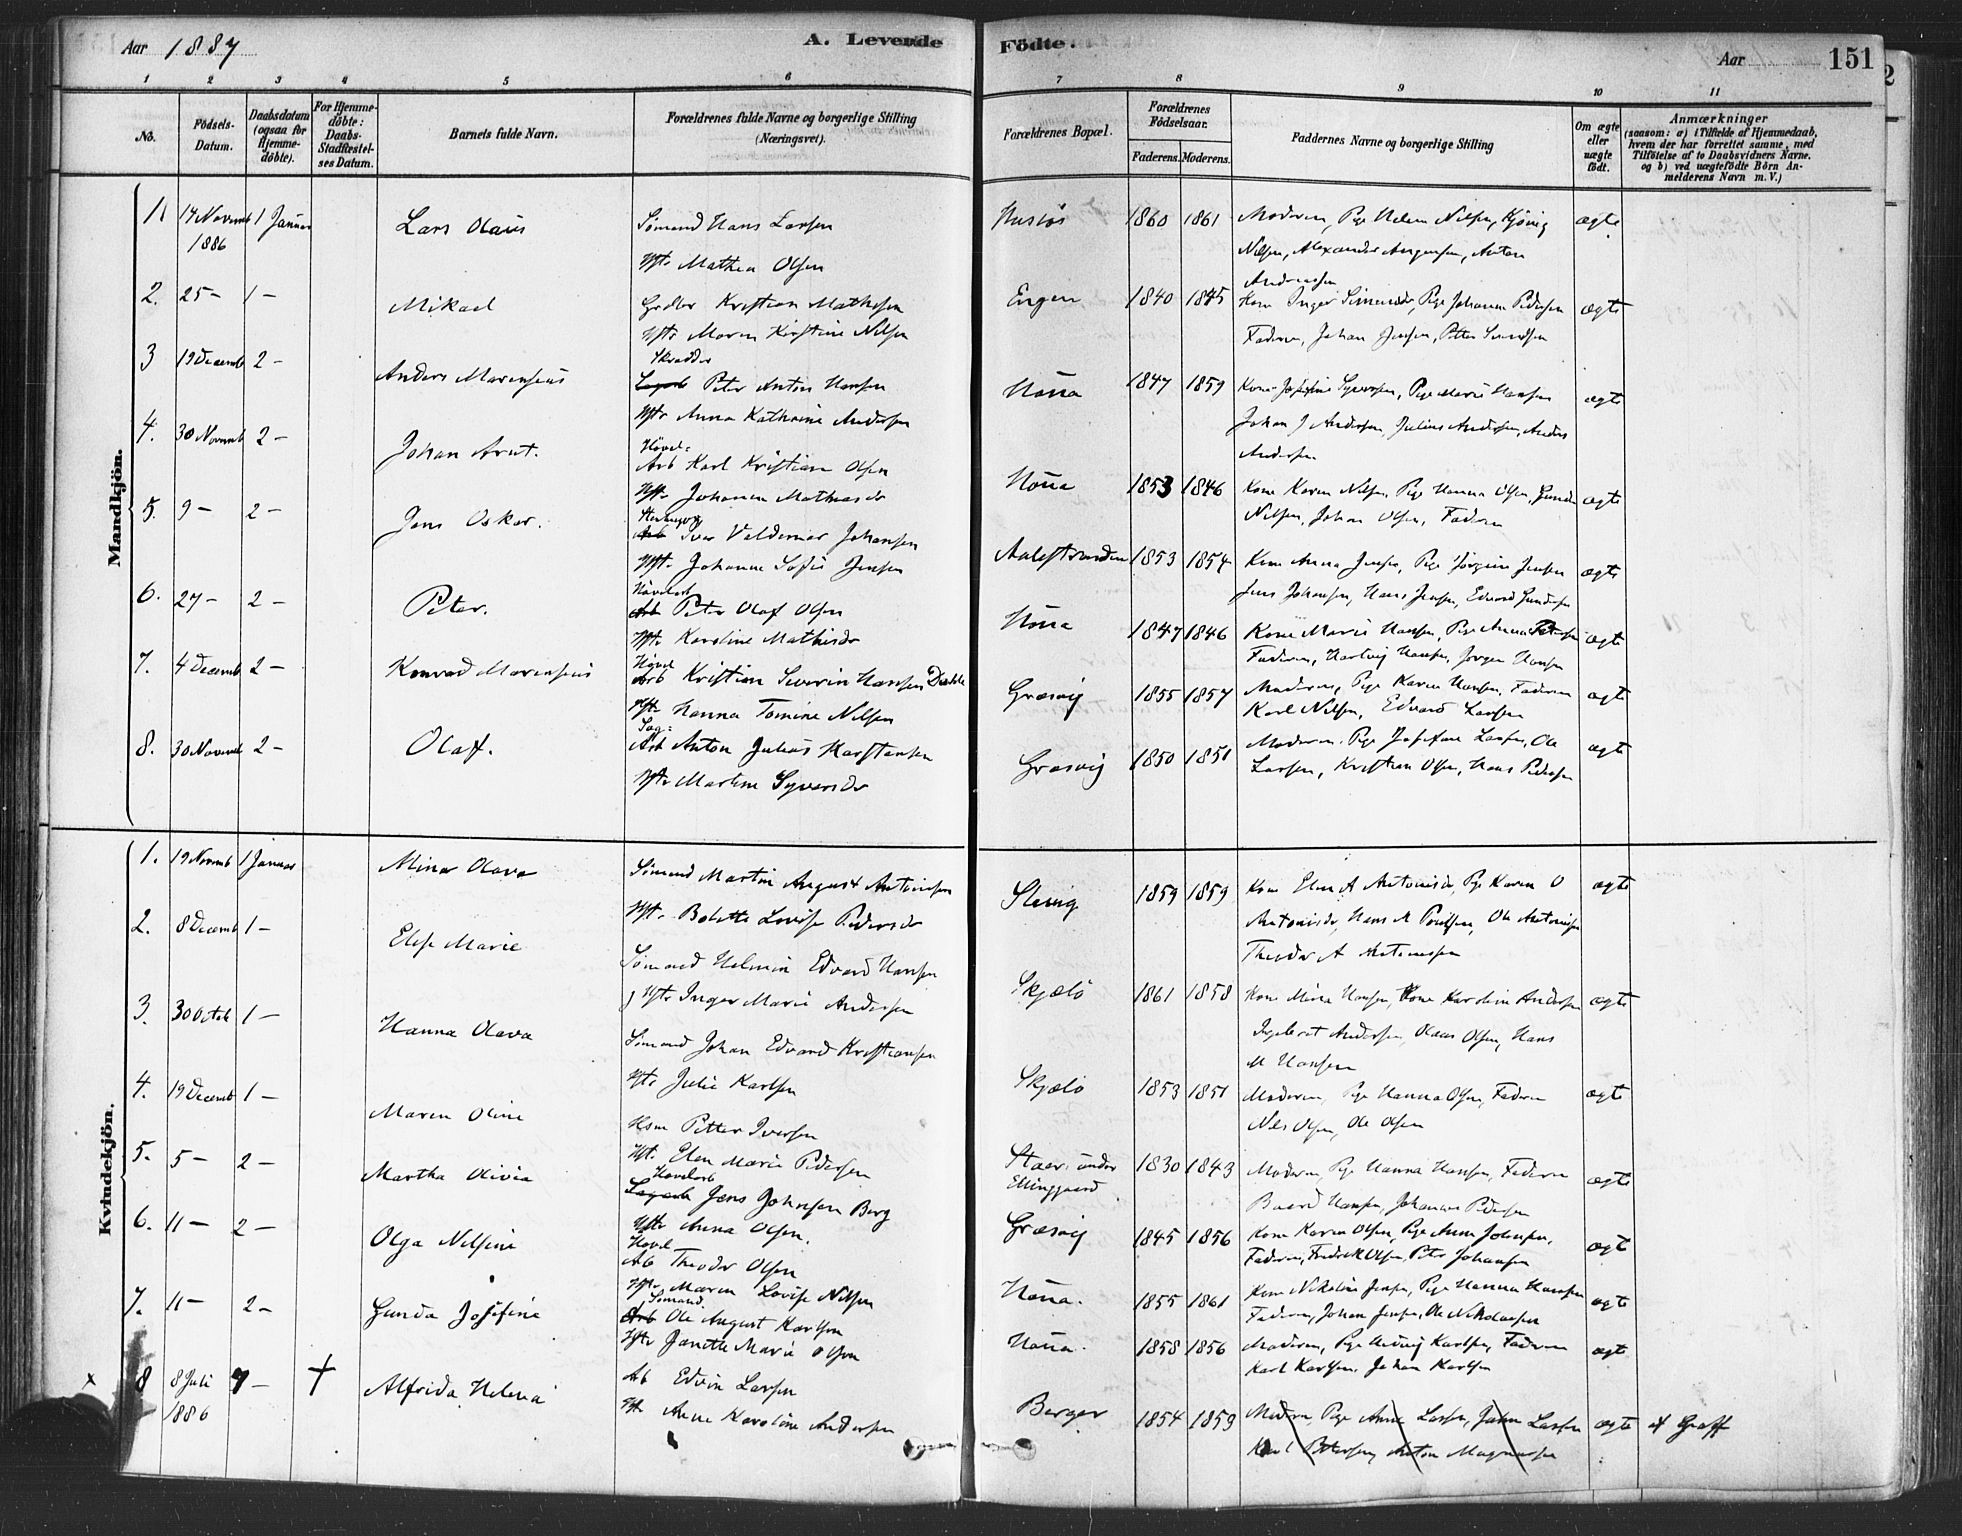 Aar 1887
A. Levende
Födte.
Aar
151
1 2 3 4 5 6 7 8 9 10 11
No.
Födsels-Datum.
Daabsdatum (ogsaa for Hjemme-döbte).
For Hjemme-döbte: Daabs-Stadfæstel-ses Datum.
Barnets fulde Navn.
Forældrenes fulde Navne og borgerlige Stilling
(Næringsvei).
Forældrenes Bopæl.
Forældrenes Födselsaar.
Faderens. Moderens.
Faddernes Navne og borgerlige Stilling
Om ægte eller uægte födt.
Anmærkninger
(saasom: a) i Tilfælde af Hjemmedaab, hvem der har forrettet samme, med Tilföielse af to Daabsvidners Navne, og b) ved uægtefödte Börn An-melderens Navn m. V.)
Mandkjön.
1. 14 Novemb 1886 1 Januar Lars Olaus
Sømand Hans Larsen
Hst. Mathea Olsen
1860 1861 Moderen, Pige Helene Nilsen,
Nilsen, Alexander Anton
Andreassen
ægte
2. 25 - 1 - Mikael
Kristian Mathisen
Hst. Maren Kirstine Nilsen
Engen 1840 1845 Kone Inger Pige Johanne Pedersen
Faderen, Johan Jensen, Petter
ægte
3 19 Decemb 2 - Anders Marensius
Skrædder
Peter Anton Hansen
Hst. Anna Kathrine Andersen
1847 1859 Kone Josefine Syversen, Pige Marie Hansen
Johan J Andersen, Julius Andersen, Anders
Andersen
ægte
4. 30 Novemb 2 - Johan Arnt.
Høvel:
Arb Karl Kristian Olsen
Hst. Johanne Mathiasdr
1853 1846 Kone Karen Nilsen, Pige Hanna Olsen,
Nilsen, Johan Olsen, Faderen
ægte
5. 9 - 2 - Jens Oskar.
Arb Iver Valdemar Johansen
Hst. Johanne Sofie Jensen
Aalestranden 1853 1854 Kone Anna Jensen, Pige Jørgine Jensen
Jens Johansen, Hans Jensen, Edvard
ægte
6. 27 - 2 - Peter.
Høvelarb
Arb Peter Olaf Olsen
Hst. Karoline Mathisdr
1847 1846 Kone Marie Hansen, Pige Anna
Faderen, Hartvig Hansen, Jørgen Hansen
ægte
7. 4 Decemb 2 - Konrad Marensius
Høvel
Arb Kristian Severin Hansen
Hst. Hanna Tomine Nilsen
Græsvig 1855 1857 Moderen, Pige Karen Hansen, Faderen
Karl Nilsen, Edvard Larsen
ægt
8. 30 Novemb 2 - Olaf.
Sag:
Arb Anton Julius Karstensen
Hst. Martine Syversdr
Græsvig 1850 1851 Moderen, Pige Josefine Larsen, Ole
Larsen, Kristian Olsen, Hans Pedersen
ægte
Kvindekjön.
1. 19 Novemb 1 Januar Mina Olava
Sømand Martin August Antonisen
Hst. Bolette Lovise Pedersdr
Slevig 1859 1859 Kone Elen A Antonisdr, Pige Karen O
Antonisdr, Hans A Poulsen, Ole Antonisen
Theodor A Antonissen
ægte
2. 8 Decemb 1 - Elise Marie
Sømand Helmin Edvard Hansen
Hst. Inger Marie Andersen
Skjælø 1861 1858 Kone Mina Hansen, Kone Karoline Andersen
Ingebret Andersen, Olaus Olsen, Hans
M Hansen
ægte
3. 30 Octob 1 - Hanna Olava
Sømand Johan Edvard Kristiansen
Hst. Julie Karlsen
Skjælø 1853 1851 Moderen, Pige Hanna Olsen, Faderen
Nils Olsen, Ole Olsen
ægte
4. 19 Decemb 1 - Maren Oline
Hsm Petter Iversen
Hst. Elen Marie Pedersen
under
Elinggaard 1830 1843 Moderen, Pige Hanna Hansen, Faderen
Hansen, Johannes Pedersen
ægte
5. 5 - 2 - Martha Olivia
Høvelarb
Jens Johnsen Berg
Hst. Anna Olsen.
Græsvig 1845 1856 Kone Karen Olsen, Pige Anne Johnsen,
Faderen, Fredrik Olsen, Peter Johansen
ægt
6. 11 - 2 - Olga Nilsine
Høvel
Arb Theodor Olsen
Hst. Maren Lovise Nilsen
1855 1861 Kone Nikoline Jensen, Pige Hanna Hansen
Faderen, Johan Jensen, Ole Nikolaisen
ægte
7. 11 - 2 - Gunda Josefine
Sømand.
Arb Ole August Karlsen
Hst. Janette Marie Olsen
1858 1856 Moderen, Pige Hedvig Karlsen, Faderen
Karl Karlsen, Johan Karlsen
ægt
x 8 8 Juli 1886 7 - † Alfrida Helene
Arb Edvin Larsen
Hst Anne Karoline Andersen
Berger 1854 1859 Moderen, Pige Anne Larsen, Johan Larsen
Karl Petersen, Anton Magnussen
ægte af Graff